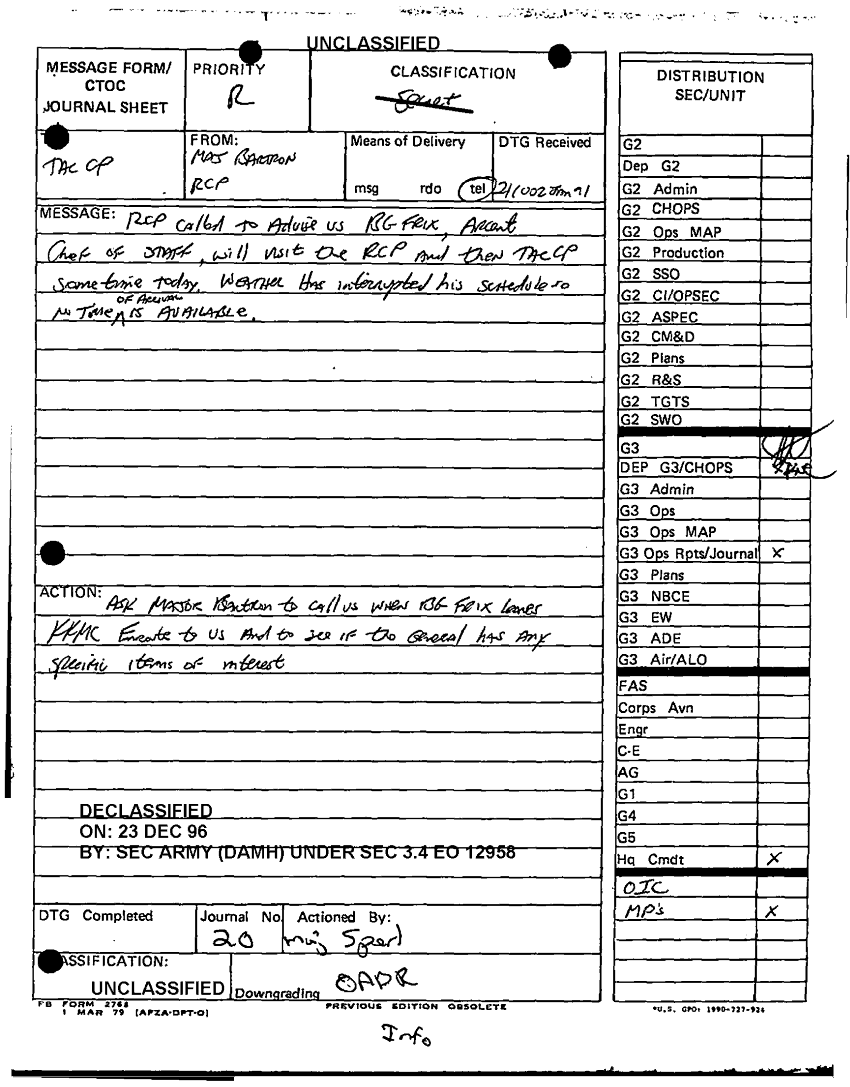 UNCLASSIFIED
MESSAGE FORM/
CTOC
JOURNAL SHEET
PRIORITY
R
CLASSIFICATION
Secret
TAC CP
FROM:
MAJ BARTRON
RCP
Means of Delivery
msg rdo tel
DTG Received
211002 Jan 91
MESSAGE: RCP called to Advise us BG FRIX, Arcent
Chef OF STAFF, will visit the RCP and then TACCP
sometime today. WEATHER Has interrupted his schedule so
OF ARRIVAL
no Time IS AVAILABLE.
ACTION: ASK MAJOR Bartron to call us when BG FRIX leaves
KKMC Enroute to us And to see if the General has Any
specific items of interest
DECLASSIFIED
ON: 23 DEC 96
BY: SEC ARMY (DAMH) UNDER SEC 3.4 EO 12958
DTG Completed
Journal No.
20
Actioned By:
maj Sperl
ASSIFICATION:
UNCLASSIFIED
Downgrading OADR
FB FORM 2768
1 MAR 79 [AFZA-DPT-O]
PREVIOUS EDITION OBSOLETE
Info
DISTRIBUTION
SEC/UNIT
G2
Dep G2
G2 Admin
G2 CHOPS
G2 Ops MAP
G2 Production
G2 SSO
G2 CI/OPSEC
G2 ASPEC
G2 CM&D
G2 Plans
G2 R&S
G2 TGTS
G2 SWO
G3
DEP G3/CHOPS
G3 Admin
G3 Ops
G3 Ops MAP
G3 Ops Rpts/Journal X
G3 Plans
G3 NBCE
G3 EW
G3 ADE
G3 Air/ALO
FAS
Corps Avn
Engr
C-E
AG
G1
G4
G5
Hq Cmdt X
OIC
MP's X
*U.S. GPO: 1990-727-926